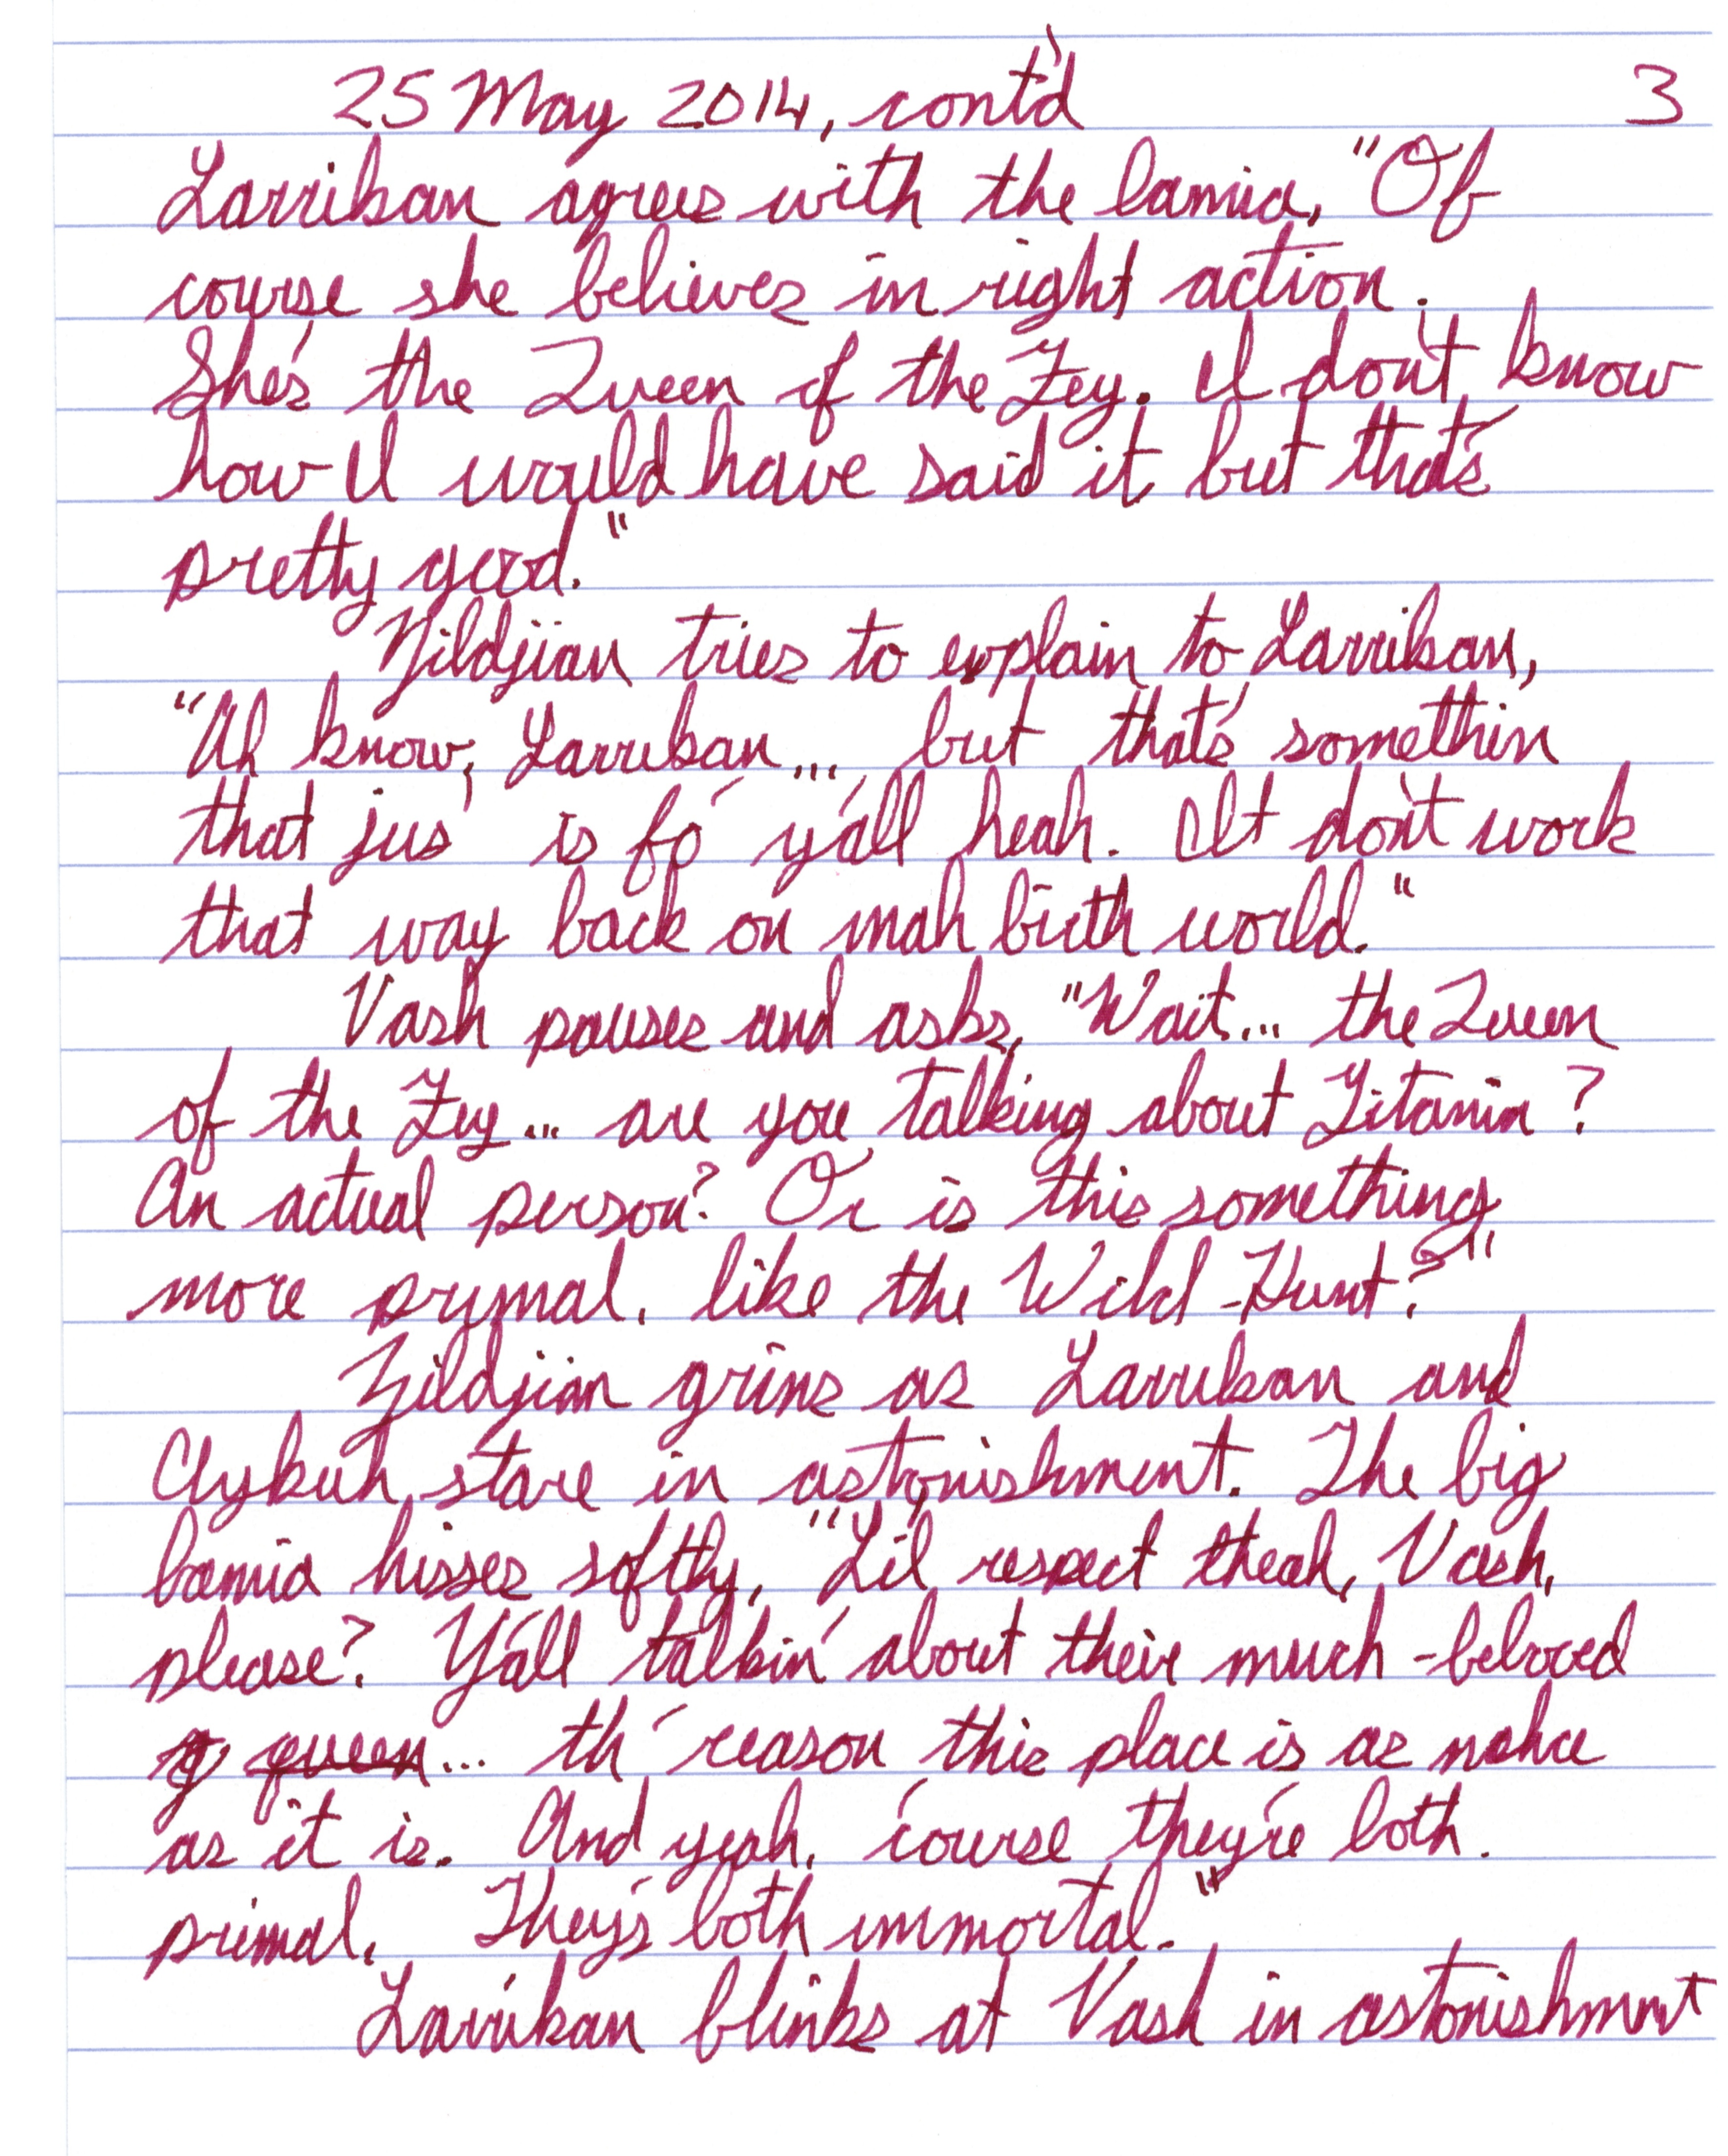 25 May 2014, cont'd 3
Larrikan agrees with the lamia, "Of
course she believes in right action.
She's the Queen of the Fey. I don't know
how I would have said it but that's
pretty good."
Zildjian tries to explain to Larrikan,
"Ah know, Larrikan... but that's somethin
that jus' is fo' y'all heah. It don't work
that way back on mah birth world."
Vash pauses and asks, "Wait... the Queen
of the Fey... are you talking about Titania?
An actual person? Or is this something
more prymal, like the Wild Hunt?"
Zildjian grins as Larrikan and
Aykuh stare in astonishment. The big
lamia hisses softly, "Li'l respect theah, Vash,
please? Y'all talkin' about their much-beloved
queen... th' reason this place is as nahce
as it is. And yeah, 'course they're both
primal. They's both immortal."
Larrikan blinks at Vash in astonishment